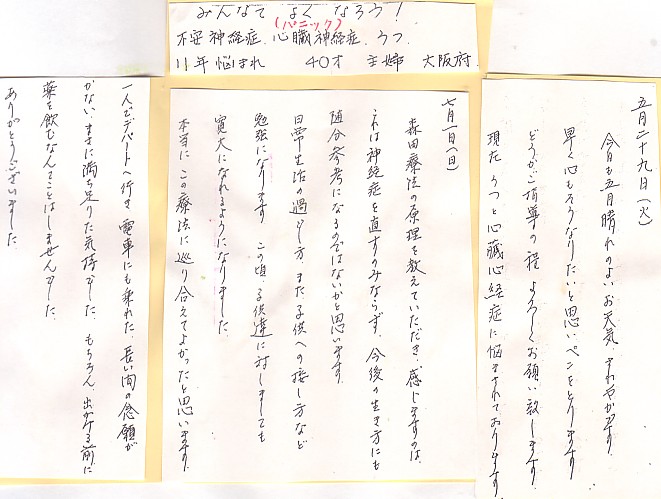 みんなで よく なろう!
(パニック)
不安神経症、心臓神経症、うつ
11年悩まれ 40才 主婦 大阪府
五月二十九日(火)
今日も五月晴れのよいお天気、さわやかです。
早く心もそうなりたいと思いペンをとります。
どうかご指導の程、よろしくお願い致します。
現在、うつと心臓心経症に悩まされております。
七月一日(日)
森田療法の原理を教えていただき、感じますのは、
これは神経症を直すのみならず、今後の生き方にも
随分参考になるのではないかと思います。
日常生活の過ごし方、また、子供への接し方など
勉強になります。この頃、子供達に対しましても
寛大になれるようになりました。
本当に、この療法に巡り合えてよかったと思います。
一人でデパートへ行き、電車にも乗れた。長い間の念願が
かない、まさに満ち足りた気持でした。もちろん、出かける前に
薬を飲むなんてことはしませんでした。
ありがとうございました。